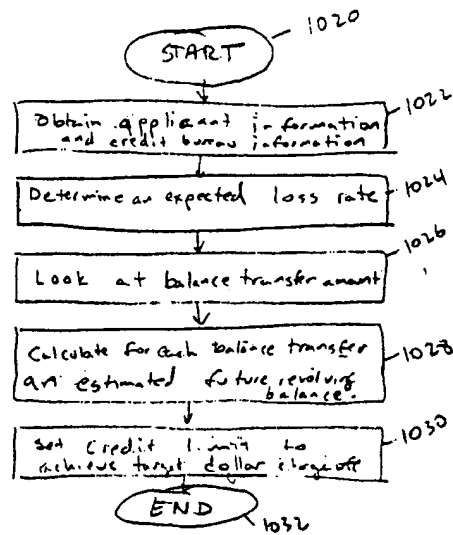 START
1020
Obtain applicant information
and credit bureau information
1022
Determine an expected loss rate
1024
Look at balance transfer amount
1026
Calculate for each balance transfer
an estimated future revolving
balance.
1028
Set Credit limit to
achieve target dollar chargeoff
1030
END
1032